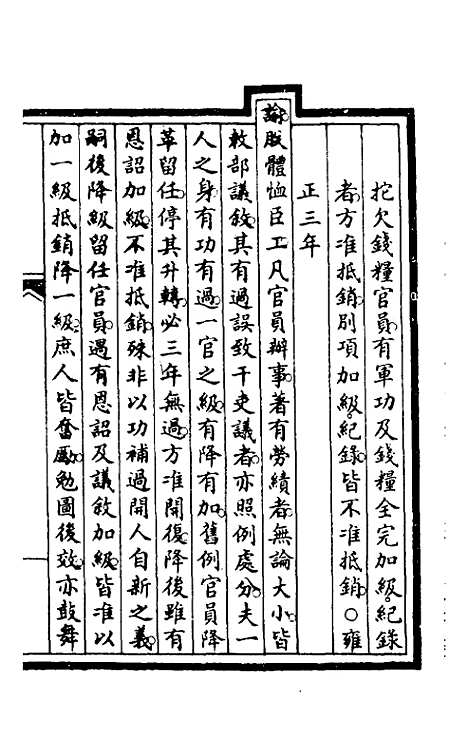 挖欠錢糧官員有軍功及錢糧全完加級紀錄
者方准抵銷別項加級紀錄皆不准抵銷○雍
正三年
諭朕體恤臣工凡官員辦事著有勞績者無論大小皆
敕部議敘其有過誤致干吏議者亦照例處分夫一
人之身有功有過一官之級有降有加舊例官員降
革留任停其升轉必三年無過方准開復降後雖有
恩詔加級不准抵銷殊非以功補過開人自新之義
嗣後降級留任官員遇有恩詔及議敘加級皆准以
加一級抵銷降一級庶人皆奮勵勉圖後效亦鼓舞